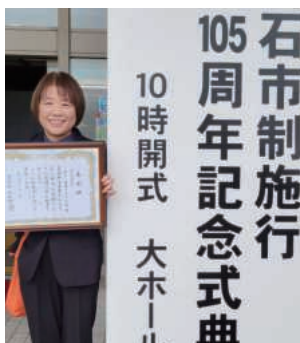 石市制施行
105周年記念式典
10時開式　大ホール